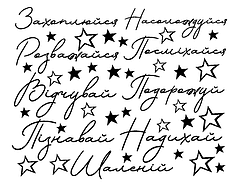 Захоплюйся Насолоджуйся
Розважайся Посміхайся
Відчувай Подорожуй
Пізнавай Надихай
Шаленій